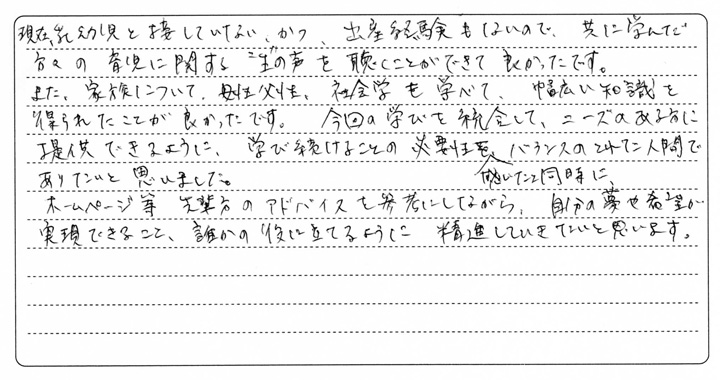 現在、乳幼児と接していない、かつ、出産経験もないので、共に学んだ
方々の育児に関する"生"の声を聴くことができて良かったです。
また、家族について、母性父性、社会学も学べて、幅広い知識を
得られたことが良かったです。 今回の学びを統合して、ニーズのある方に
提供できるように、学び続けることの必要性を感じたと同時に、バランスのとれた人間で
ありたいと思いました。
ホームページ等 先輩方のアドバイスも参考にしながら、自分の夢や希望が
実現できること、誰かの役に立てるように精進していきたいと思います。